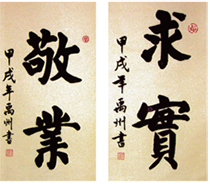 求實
甲戌年禹州書
敬業
甲戌年禹州書